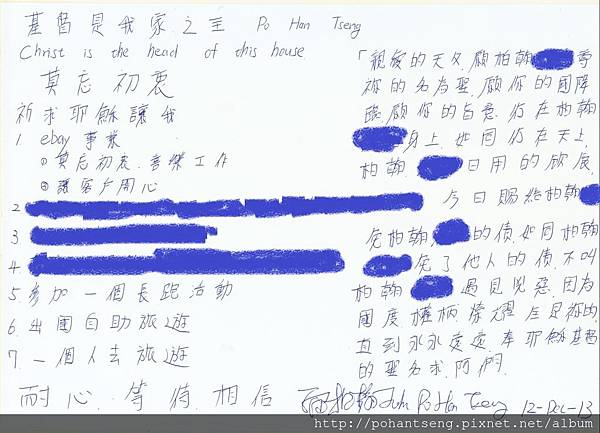 基督是我家之主 Po Han Tseng
Christ is the head of this house
莫忘初衷
祈求耶穌讓我
1 ebay 事業
①莫忘初衷.喜樂工作
②讓客戶開心
2
3
4
5.參加一個長跑活動
6.出國自助旅遊
7.一個人去旅遊
耐心.等待.相信
「親愛的天父,願柏翰 尊
祢的名為聖,願你的國降
臨,願你的旨意,行在柏翰
身上,如同行在天上,
柏翰 日用的飲食,
今日賜給柏翰
免柏翰 的債,如同柏翰
免了他人的債,不叫
柏翰 遇見兇惡,因為
國度權柄榮耀全是祢的
直到永永遠遠,奉耶穌基督
的聖名求,阿們.
Po Han Tseng 12-Dec-13
http://pohantseng.pixnet.net/album